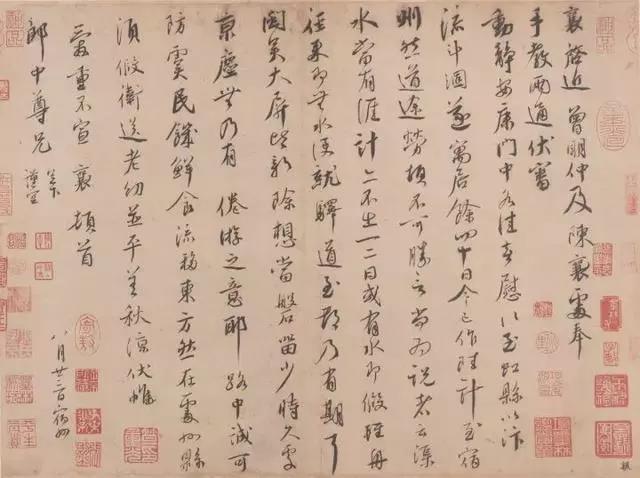 襄啓近 曾明仲及陳襄處奉
手教兩通伏審
動靜安康門中各佳喜慰〻至虹縣以汴
流斗涸遂寓居餘四十日今已作陸計至宿
州然道途勞頓不可勝言尚為說者云渠
水當有涯計亦不出一二日或有水即假輕舟
徑來即無水便就驛道至都乃有期耳
閩吳大屏皆新除想當磐留少時久處
京塵無乃有 倦游之意耶 路中諸可
防虞民饑鮮食流移東方然在處州縣
須假衛送老幼並平善秋涼伏惟
愛重不宣 襄 頓首
郎中尊兄 足下
謹空
八月廿日宿州